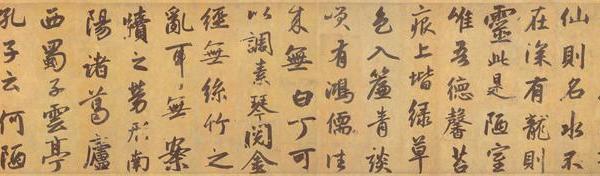 仙則名水不
在深有龍則
靈此是陋室
惟吾德馨苔
痕上堦緑草
色入簾青談
咲有鴻儒往
来無白丁可
以調素琴閲金
經無絲竹之
亂耳無案
牘之勞形南
陽諸葛廬
西蜀子雲亭
孔子云何陋